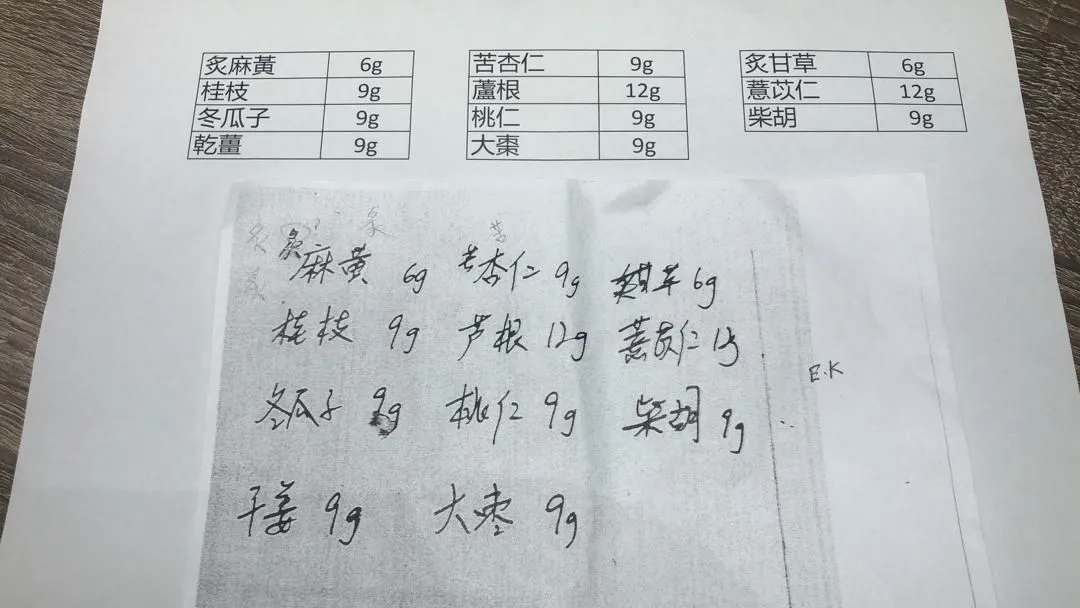 炙麻黃 6g 苦杏仁 9g 炙甘草 6g
桂枝 9g 蘆根 12g 薏苡仁 12g
冬瓜子 9g 桃仁 9g 柴胡 9g
乾薑 9g 大棗 9g
炙 苦
麻黄 6g 苦杏仁 9g 6g
桂枝 9g 芦根 12g 薏苡仁
E.K
冬瓜子 9g 桃仁 9g 柴胡 9g
干姜 9g 大枣 9g